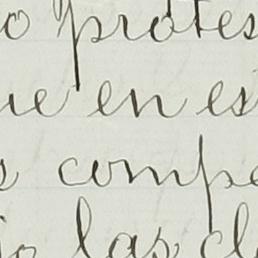 o protes
ue en es
s compe
io las cl